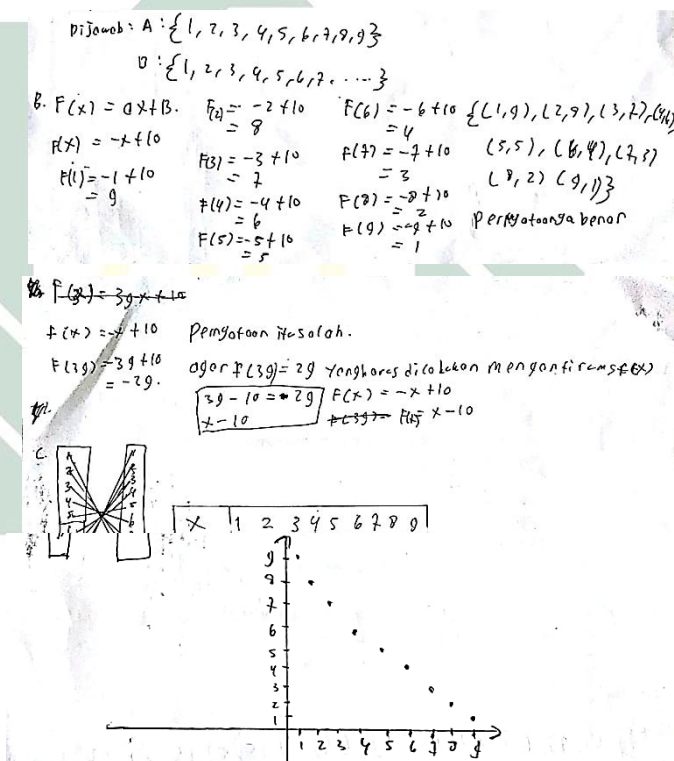 Dijawab: A : {1, 2, 3, 4, 5, 6, 7, 8, 9}
B : {1, 2, 3, 4, 5, 6, 7, ....}
B. F(x) = ax+B.
F(x) = -x+10
F(1) = -1 + 10
= 9
F(2) = -2 + 10
= 8
F(3) = -3 + 10
= 7
F(4) = -4 + 10
= 6
F(5) = -5 + 10
= 5
F(6) = -6 + 10
= 4
F(7) = -7 + 10
= 3
F(8) = -8 + 10
= 2
F(9) = -9 + 10
= 1
{(1,9), (2,9), (3,7), (4,6)
(5,5), (6,4), (7,3)
(8,2) (9,1)}
Pernyataannya benar
F(x) = 39-x+10
f(x) = -x + 10 Pernyataan itu salah.
F(39) = -39 + 10
= -29.
agar f(39) = 29 yang harus dilakukan mengganti rumus f(x)
39 - 10 = 29
x - 10
F(x) = -x + 10
F(x) = x - 10
C.
1
2
3
4
5
1
2
3
4
5
6
x 1 2 3 4 5 6 7 8 9
9
8
7
6
5
4
3
2
1
1 2 3 4 5 6 7 8 9